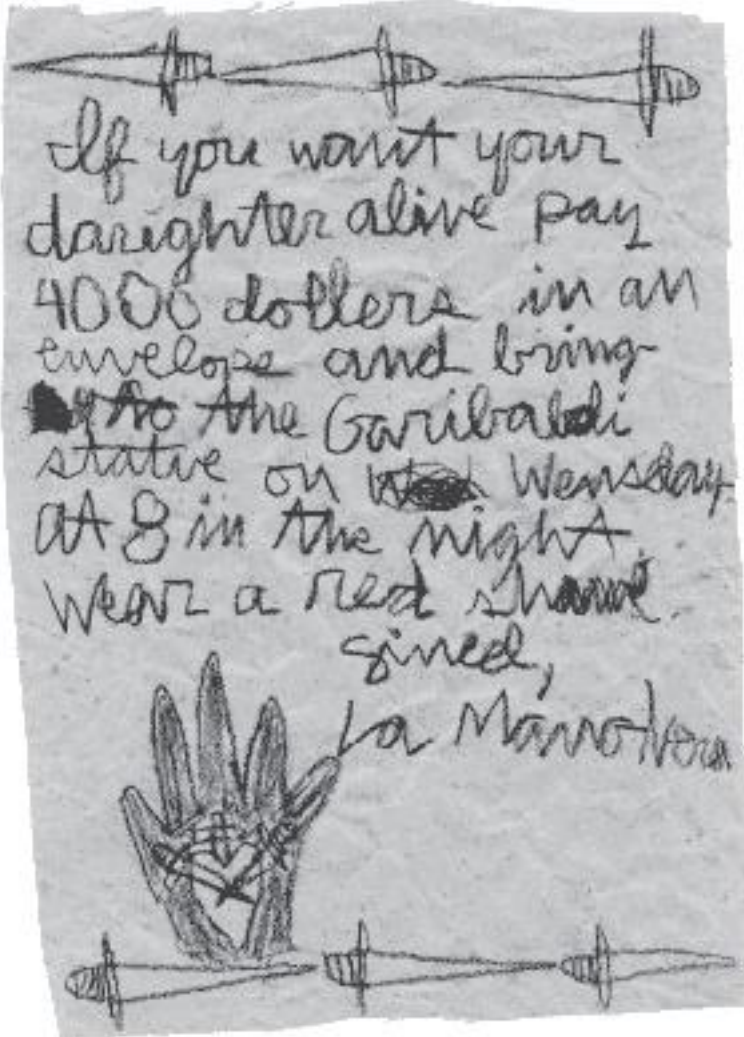 If you want your
darighter alive pay
4000 dollers in an
envelope and bring
to the Garibaldi
statue on Wensday
at 8 in the night.
Wear a red shawl.
Sined,
La Mano Nera